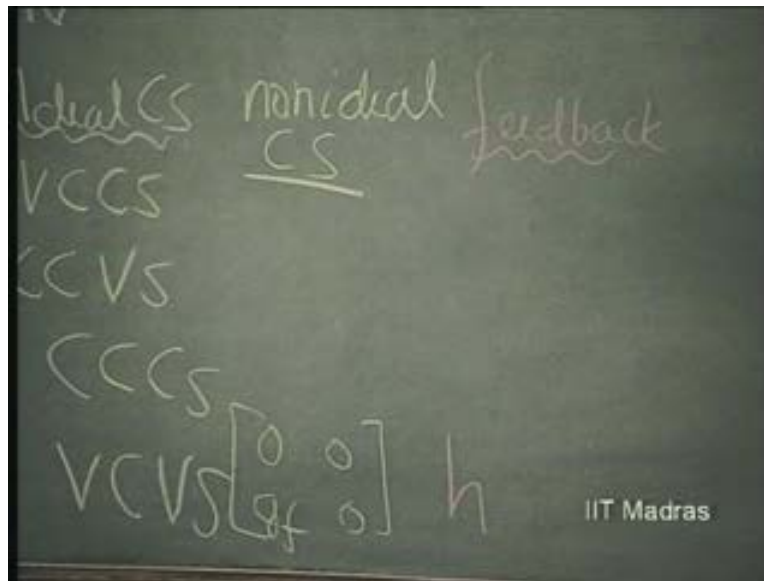 Ideal CS nonideal feedback
CS
VCCS
CCVS
CCCS
VCVS [0 0
gf 0] h
IIT Madras